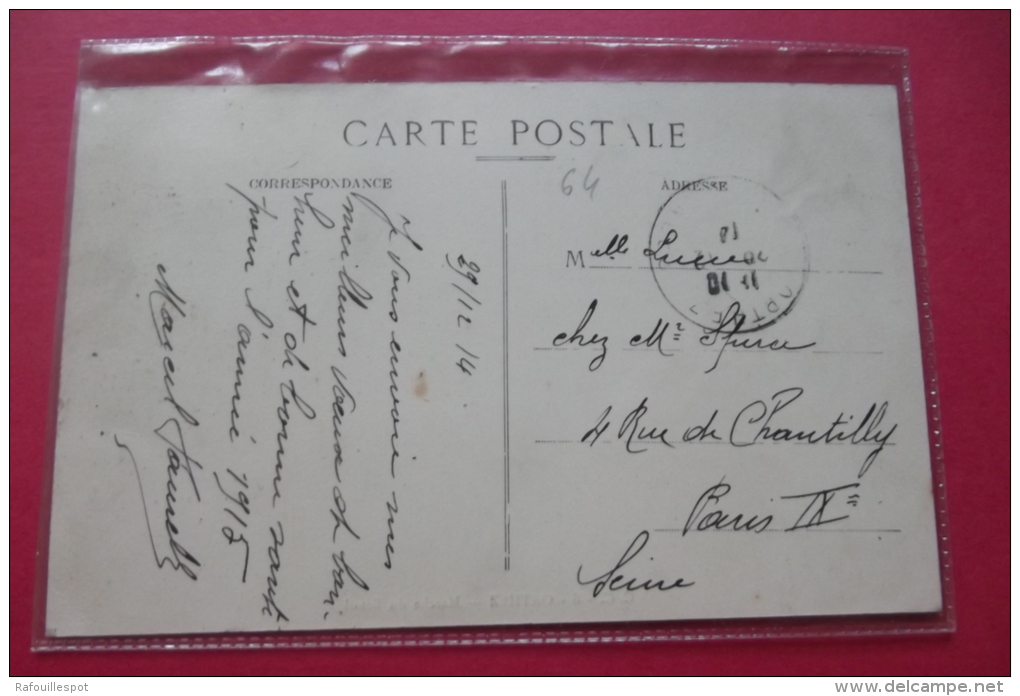 CARTE POSTALE
64
CORRESPONDANCE
ADRESSE
29/12 14
Je vous envoie mes
meilleurs vœux de bon-
heur et de bonne santé
pour l'année 1915
Marcel
Melle
chez Mr
4 Rue de Chantilly
Paris IXe
Seine
Rafouillespot
www.delcampe.net